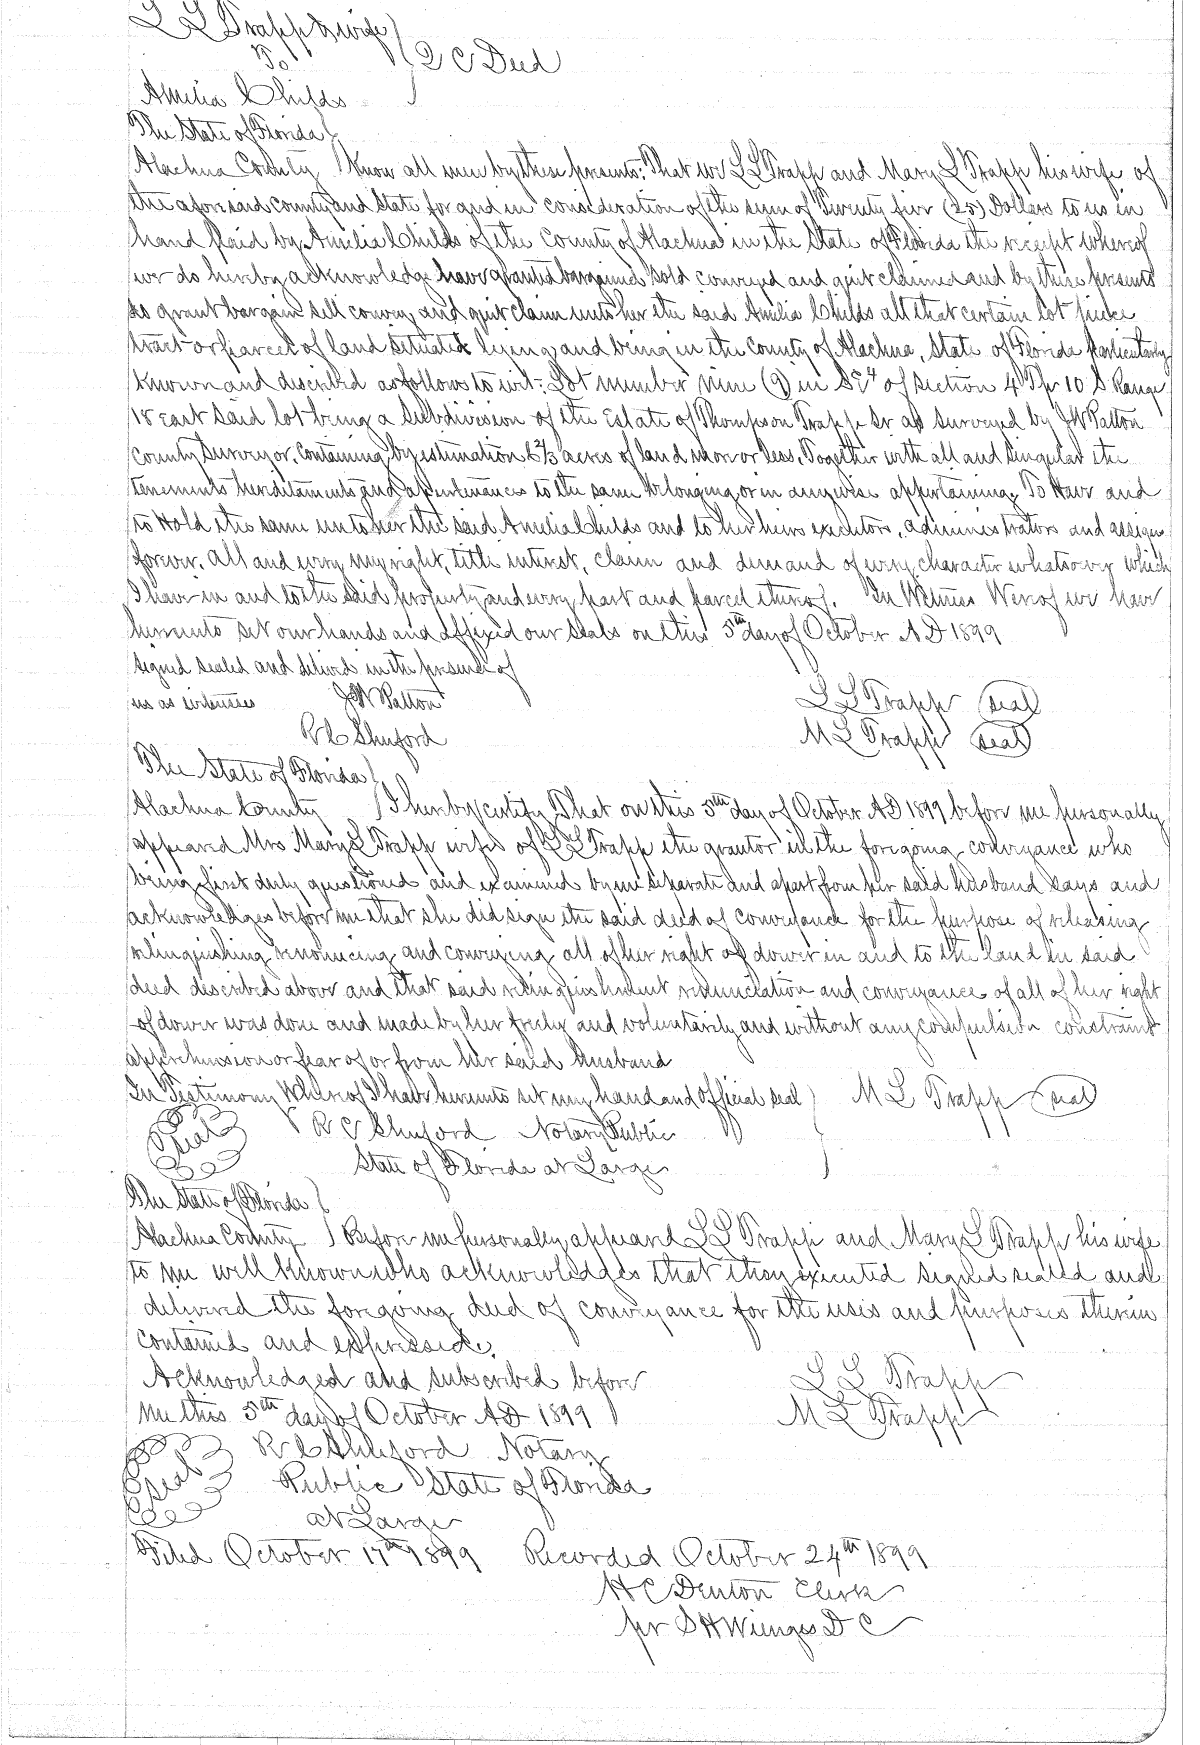 L L Trapp & wife
To
Q C Deed
Amelia Childs
The State of Florida
Alachua County Know all men by these presents: That we L L Trapp and Mary L Trapp his wife of
the aforesaid county and State for and in consideration of the sum of Twenty five (25) Dollars to us in
hand paid by Amelia Childs of the County of Alachua in the State of Florida the receipt whereof
we do hereby acknowledge have granted bargained sold conveyed and quit claimed and by these presents
do grant bargain sell convey and quit claim unto her the said Amelia Childs all that certain lot piece
tract or parcel of land situated lying and being in the County of Alachua, State of Florida particularly
known and described as follows to wit: Lot number nine (9) in SE4 of Section 4 Tp 10 S Range
18 East said lot being a Subdivision of the Estate of Thompson Trapp Sr as surveyed by J W Patton
County Surveyor, containing by estimation 6 2/3 acres of land more or less, Together with all and singular the
tenements hereditaments and appurtenances to the same belonging or in anywise appertaining, To Have and
to Hold the same unto her the said Amelia Childs and to her heirs executors, administrators and assigns
forever. All and every my right, title interest, claim and demand of every character whatsoever which
I have in and to the said property and every part and parcel thereof. In Witness Wereof we have
hereunto set our hands and affixed our seals on this 5th day of October A D 1899
signed sealed and delivered in the presence of
us as witnesses J W Patton L L Trapp seal
R C Shuford M L Trapp seal
The State of Florida
Alachua County I hereby certify That on this 5th day of October A D 1899 before me personally
appeared Mrs Mary L Trapp wife of L L Trapp the grantor in the foregoing conveyance who
being first duly questioned and examined by me separate and apart from her said husband says and
acknowledges before me that she did sign the said deed of conveyance for the purpose of releasing
relinquishing renouncing and conveying all of her right of dower in and to the land in said
deed described above and that said relinquishment renunciation and conveyance of all of her right
of dower was done and made by her freely and voluntarily and without any compulsion constraint
apprehension or fear of or from her said husband
In Testimony Whereof I have hereunto set my hand and official seal M L Trapp seal
seal R C Shuford Notary Public
State of Florida at Large
The State of Florida
Alachua County Before me personally appeared L L Trapp and Mary L Trapp his wife
to me well known who acknowledges that they executed signed sealed and
delivered the foregoing deed of conveyance for the uses and purposes therein
contained and expressed.
Acknowledged and subscribed before L L Trapp
me this 5th day of October A D 1899 M L Trapp
R C Shuford Notary
seal Public State of Florida
at Large
Filed October 17th 1899 Recorded October 24th 1899
H C Denton Clerk
per S H Wienges D C